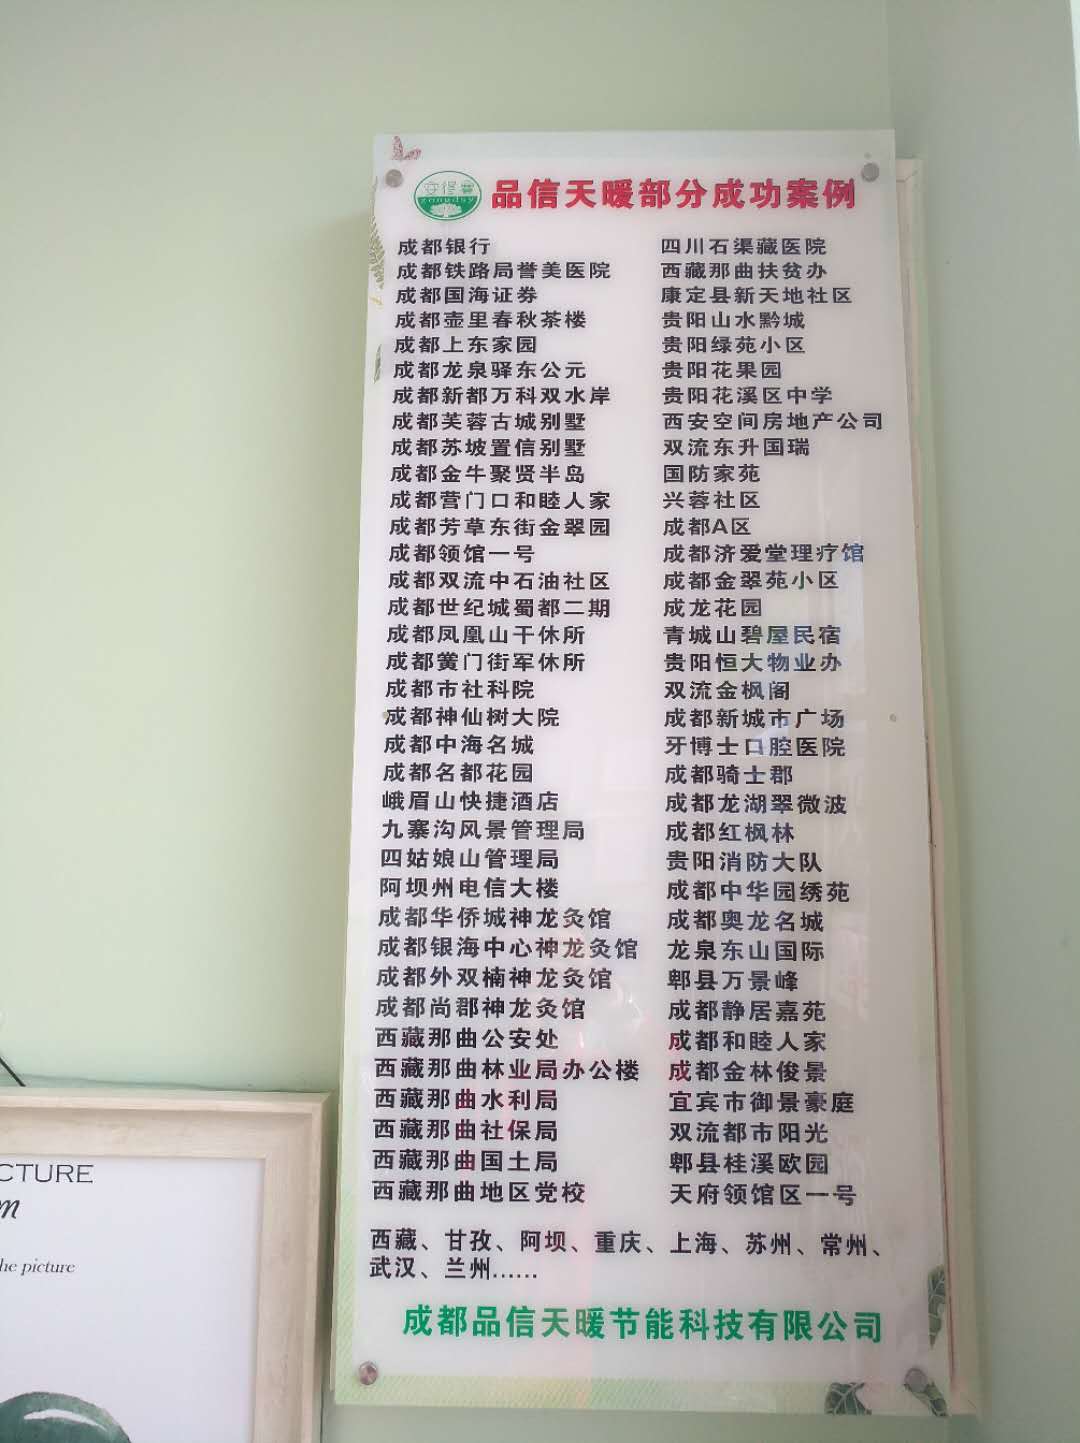 品信天暖部分成功案例
成都银行
成都铁路局誉美医院
成都国海证券
成都壶里春秋茶楼
成都上东家园
成都龙泉驿东公元
成都新都万科双水岸
成都芙蓉古城别墅
成都苏坡置信别墅
成都金牛聚贤半岛
成都营门口和睦人家
成都芳草东街金翠园
成都领馆一号
成都双流中石油社区
成都世纪城蜀都二期
成都凤凰山干休所
成都黉门街军休所
成都市社科院
成都神仙树大院
成都中海名城
成都名都花园
峨眉山快捷酒店
九寨沟风景管理局
四姑娘山管理局
阿坝州电信大楼
成都华侨城神龙灸馆
成都银海中心神龙灸馆
成都外双楠神龙灸馆
成都尚郡神龙灸馆
西藏那曲公安处
西藏那曲林业局办公楼
西藏那曲水利局
西藏那曲社保局
西藏那曲国土局
西藏那曲地区党校
四川石渠藏医院
西藏那曲扶贫办
康定县新天地社区
贵阳山水黔城
贵阳绿苑小区
贵阳花果园
贵阳花溪区中学
西安空间房地产公司
双流东升国瑞
国防家苑
兴蓉社区
成都A区
成都济爱堂理疗馆
成都金翠苑小区
成龙花园
青城山碧屋民宿
贵阳恒大物业办
双流金枫阁
成都新城市广场
牙博士口腔医院
成都骑士郡
成都龙湖翠微波
成都红枫林
贵阳消防大队
成都中华园绣苑
成都奥龙名城
龙泉东山国际
郫县万景峰
成都静居嘉苑
成都和睦人家
成都金林俊景
宜宾市御景豪庭
双流都市阳光
郫县桂溪欧园
天府领馆区一号
西藏、甘孜、阿坝、重庆、上海、苏州、常州、
武汉、兰州......
成都品信天暖节能科技有限公司
CTURE
he picture